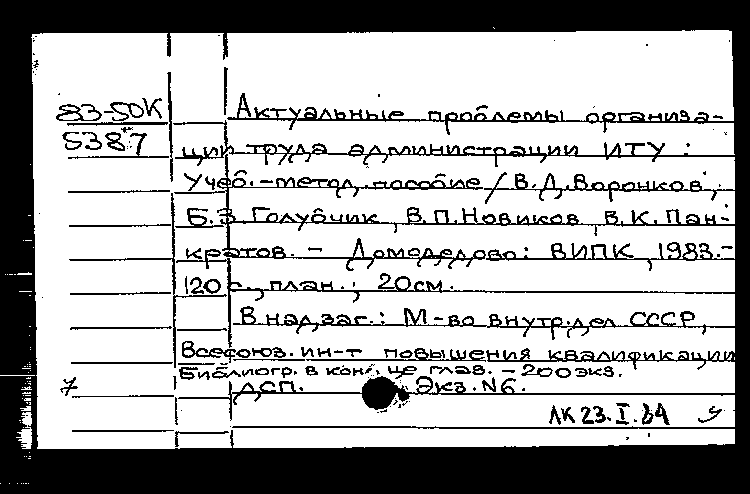 83-50К Актуальные проблемы организа-
5387 ции труда администрации ИТУ :
Учеб.-метод. пособие / В.Д.Воронков,
Б.З Голубчик, В.П.Новиков, В.К.Пан-
кратов. - Домодедово: ВИПК, 1983.-
120 с., план.; 20см.
В надзаг.: М-во внутр.дел СССР,
Всесоюз. ин-т повышения квалификации
Библиогр. в конце глав. - 200экз.
7 ДСП. Экз. №6.
ЛК 23.I.84